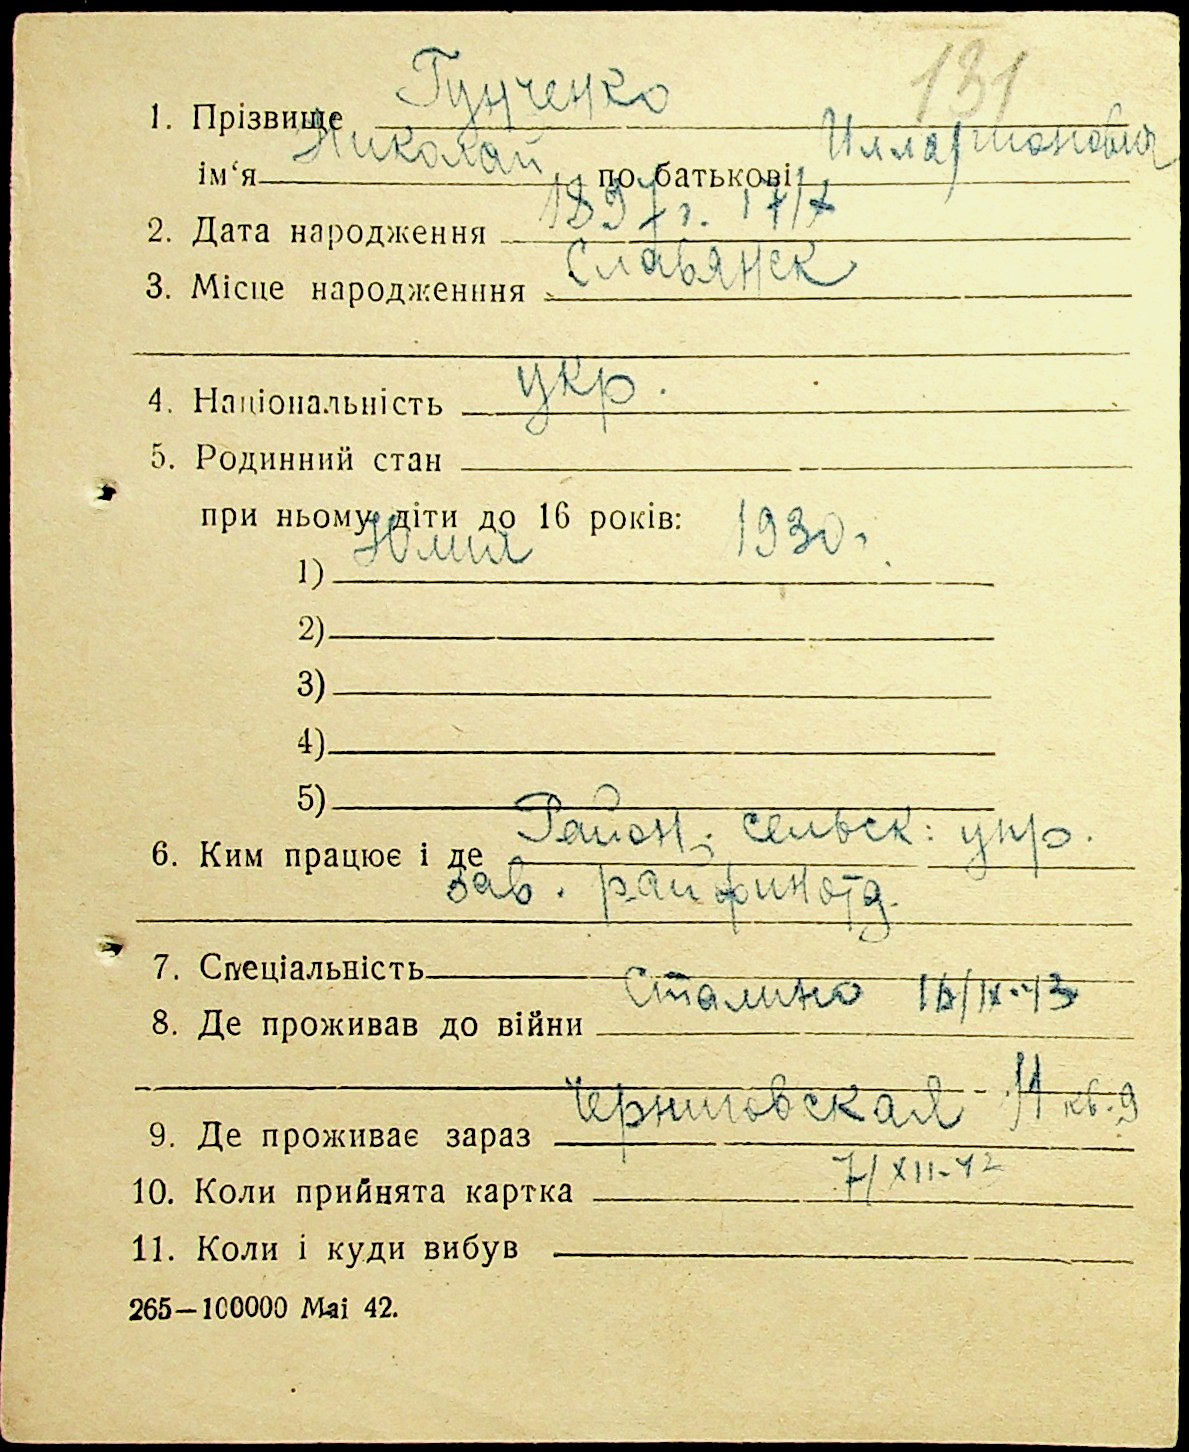 131
1. Прізвище Гунченко
ім‘я Николай по батькові Илларионович
2. Дата народження 1897 г. 17/X
3. Місце народженння Славянск
4. Національність укр.
5. Родинний стан
при ньому діти до 16 років:
1) Юлия 1930 г.
2)
3)
4)
5)
6. Ким працює і де Район. сельск: упр.
зав. райфинотд.
7. Спеціальність
8. Де проживав до війни Сталино 16/IX-43
9. Де проживає зараз Черниговская 11 кв. 9
10. Коли прийнята картка 7/XII-42
11. Коли і куди вибув
265—100000 Маі 42.